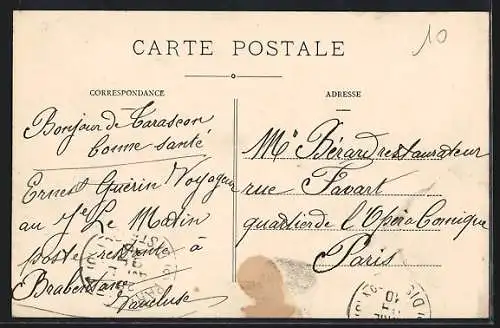 10
CARTE POSTALE
CORRESPONDANCE
ADRESSE
Bonjour de Tarascon
bonne santé
Ernest Guérin Voyageur
au Je Le Matin
poste restante à
Vaucluse
Mr Bérard restaurateur
rue Favart
quartier de l'Opéra Comique
Paris